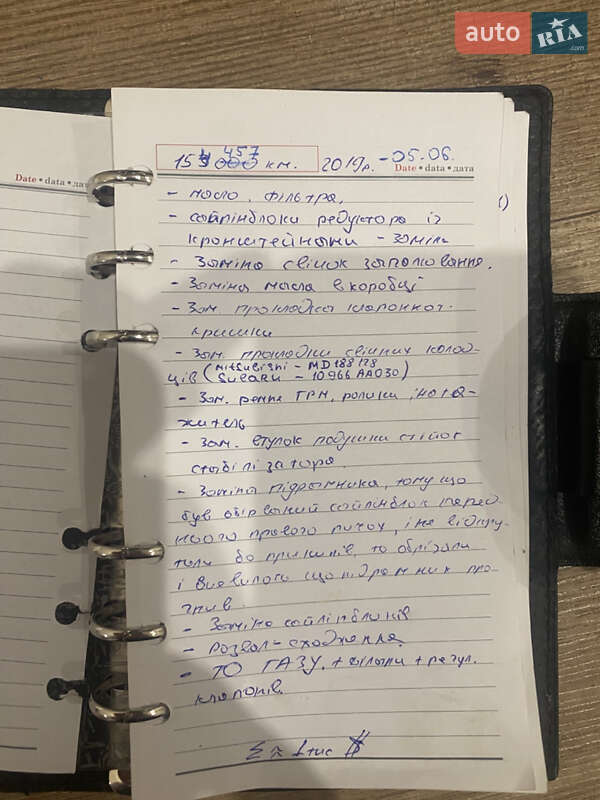 auto RIA .com
Date • data • дата
154 457 км. 2019р. - 05.06.
Date • data • дата
- масло, фільтра,
- сайлінблоки редуктора із
кронштейнами - заміна
- Заміна свічок запалювання.
- Заміна масла в коробці
- Зам. прокладка клапонної
кришки
- Зам. прокладки свічних колод-
ців (Mitsubishi - MD188178
Subaru - 10966 AA030)
- Зам. ремня ГРМ, ролики, і натя-
житель
- Зам. втулок подушки стійок
стабілізатора.
- Заміна підрамника, тому що
був обірваний сайлінблок перед
нього правого ричах, і не відкру-
тили бо прикипів, то обрізали
і виявилося що підрамник про
гнив.
- Заміна сайлінблоків
- розвал-сходження
- ТО ГАЗУ. + фільтри + регул.
клапонів.
Σ ≈ 1 тис $